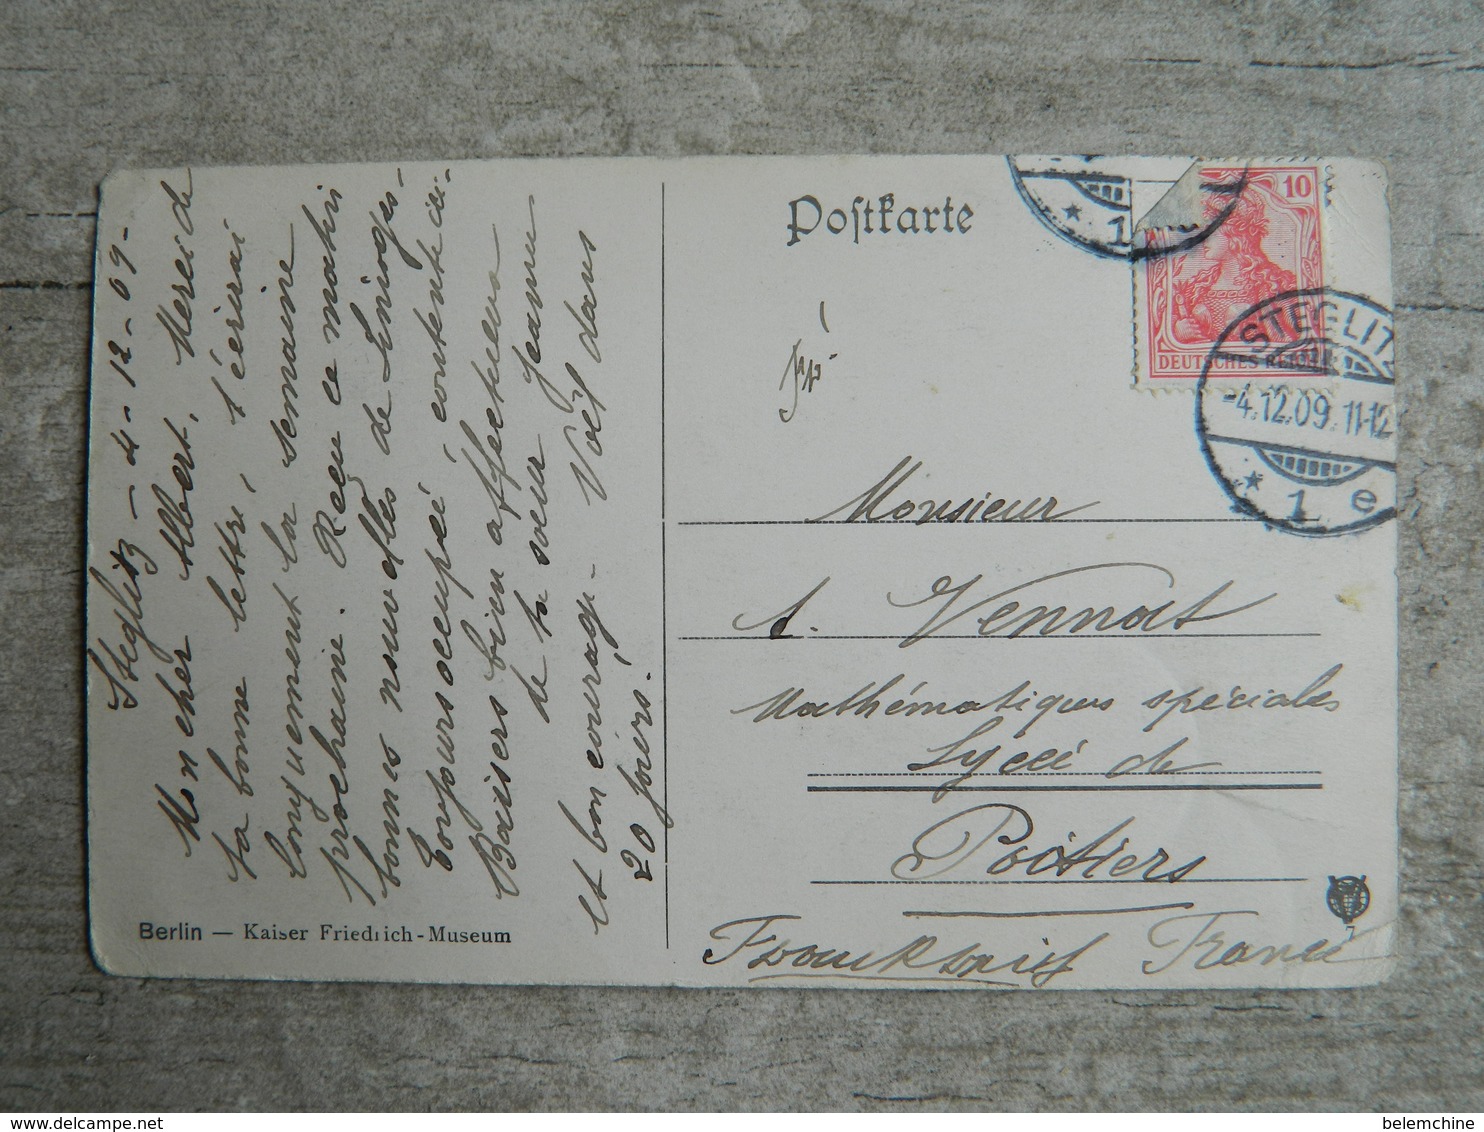 Steglitz - 4-12-09-
Mon cher Albert, Merci de
ta bonne lettre, t'écrirai
longuement la semaine
prochaine. Reçu ce matin
bonnes nouvelles de Limoges-
Toujours occupée, contente ici-
Baisers bien affectueux
de ta sœur Jeanne
et bon courage- Noël dans
20 jours!
Berlin — Kaiser Friedrich-Museum
Postkarte
10
DEUTSCHES REICH
* 1
STEGLITZ
-4.12.09. 11-12
* 1 e
Monsieur
A. Vennat
Mathématiques spéciales
Lycée de
Poitiers
Frankreich France
7
belemchine